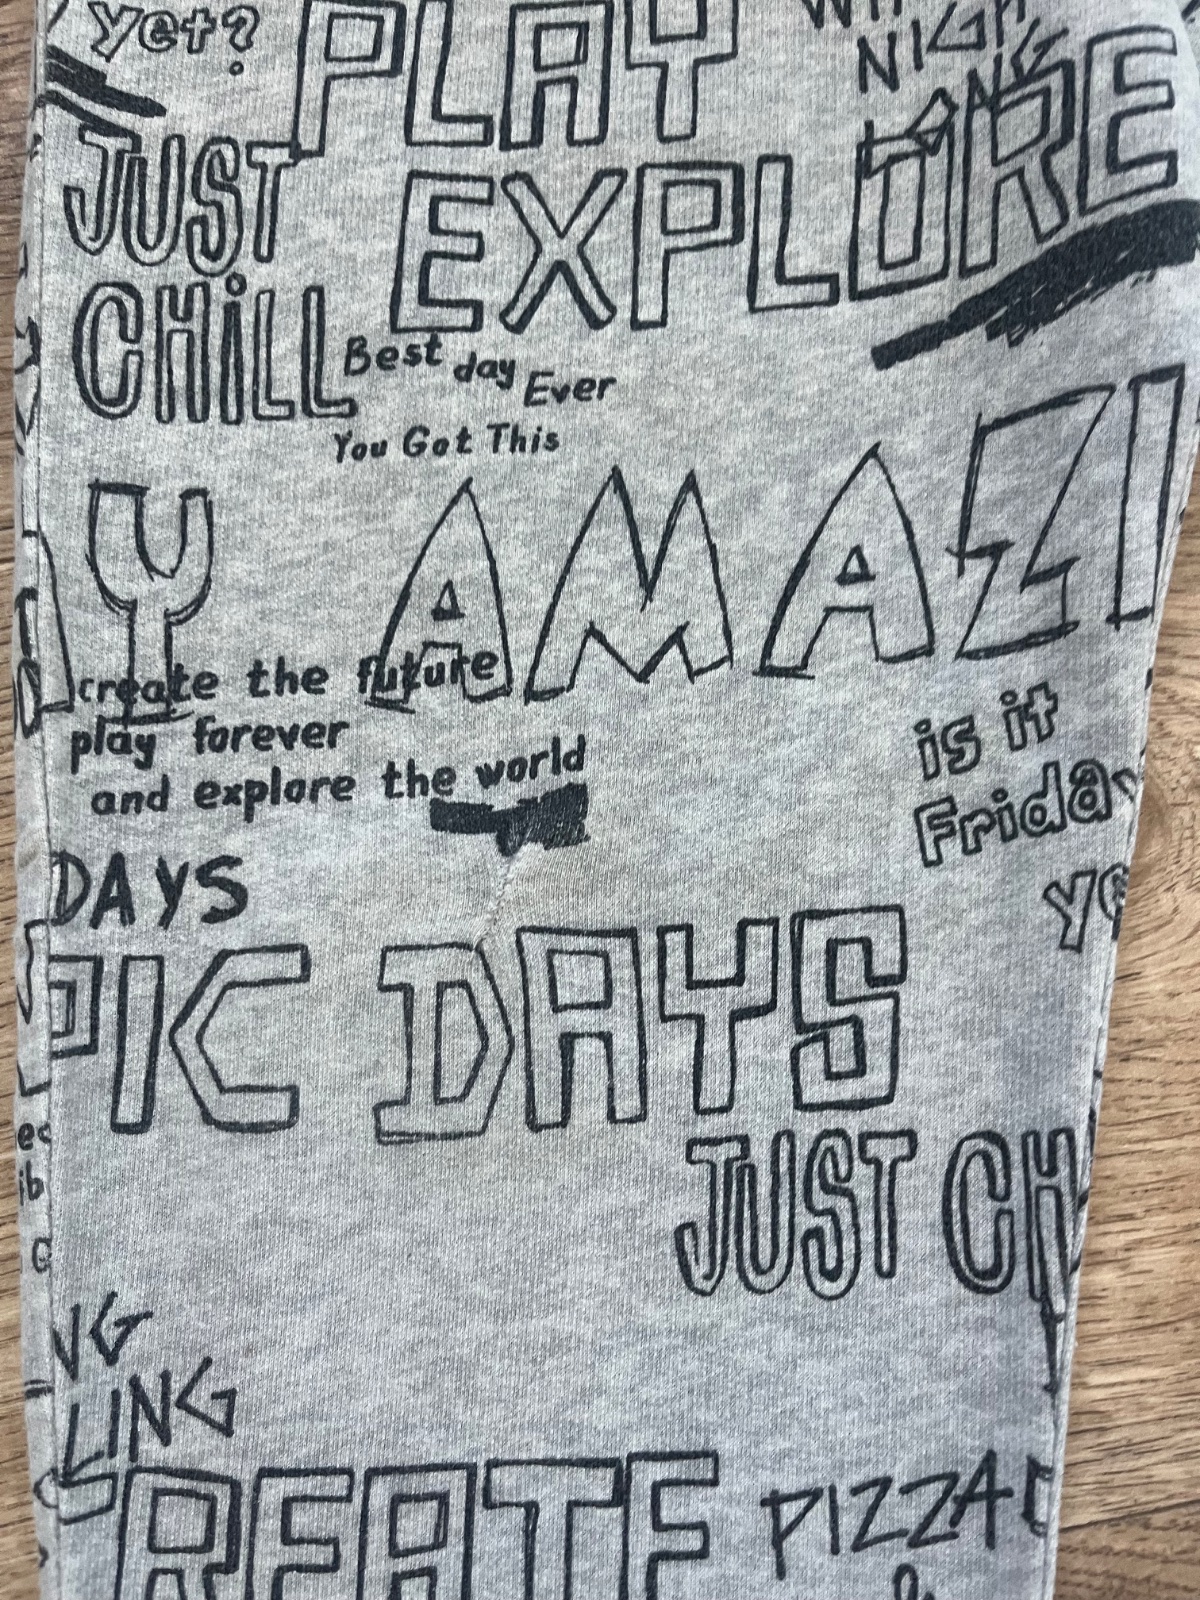 yet?
PLAY
JUST
CHiLL
EXPLORE
Best day Ever
You Got This
Y AMAZI
create the future
play forever
and explore the world
is it
Friday
ye
DAYS
PIC DAYS
JUST CH
NG
LING
REATE
PIZZA
&